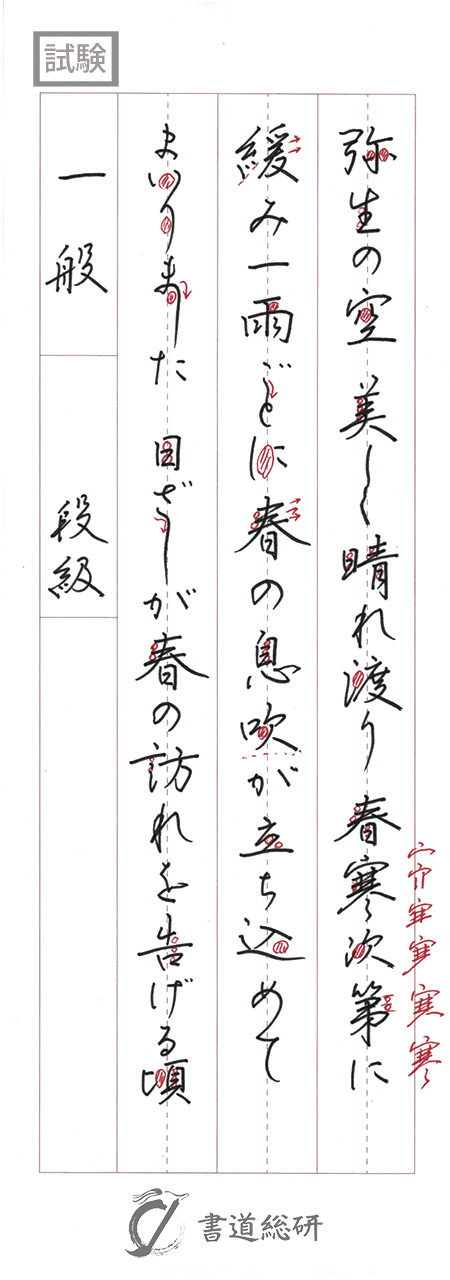 試験
弥生の空美しく晴れ渡り春寒次第に
緩み一雨ごとに春の息吹が立ち込めて
まいりました日ざしが春の訪れを告げる頃
一般
段級
宀
寒
書道総研